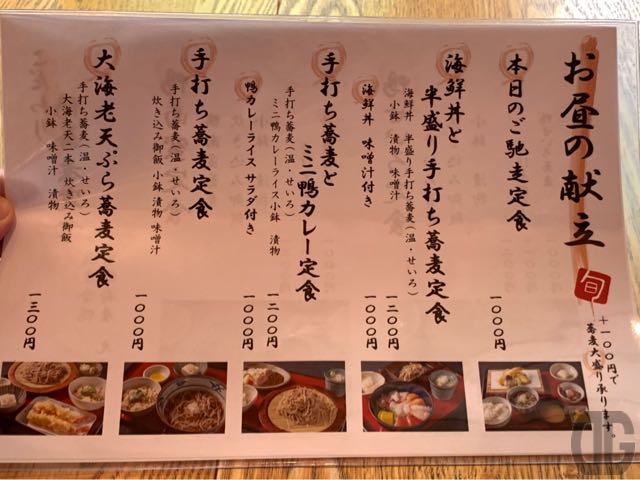 お昼の献立
旬
+一〇〇円で
蕎麦大盛り承ります。
本日のご馳走定食
一〇〇〇円
海鮮丼と
半盛り手打ち蕎麦定食
海鮮丼 半盛り手打ち蕎麦(温・せいろ)
小鉢 漬物 味噌汁
一二〇〇円
海鮮丼 味噌汁付き
一〇〇〇円
手打ち蕎麦と
ミニ鴨カレー定食
手打ち蕎麦(温・せいろ)
ミニ鴨カレーライス小鉢 漬物
一二〇〇円
鴨カレーライス サラダ付き
一〇〇〇円
手打ち蕎麦定食
手打ち蕎麦(温・せいろ)
炊き込み御飯 小鉢 漬物 味噌汁
一〇〇〇円
大海老天ぷら蕎麦定食
手打ち蕎麦(温・せいろ)
大海老天二本 炊き込み御飯
小鉢 味噌汁 漬物
一三〇〇円